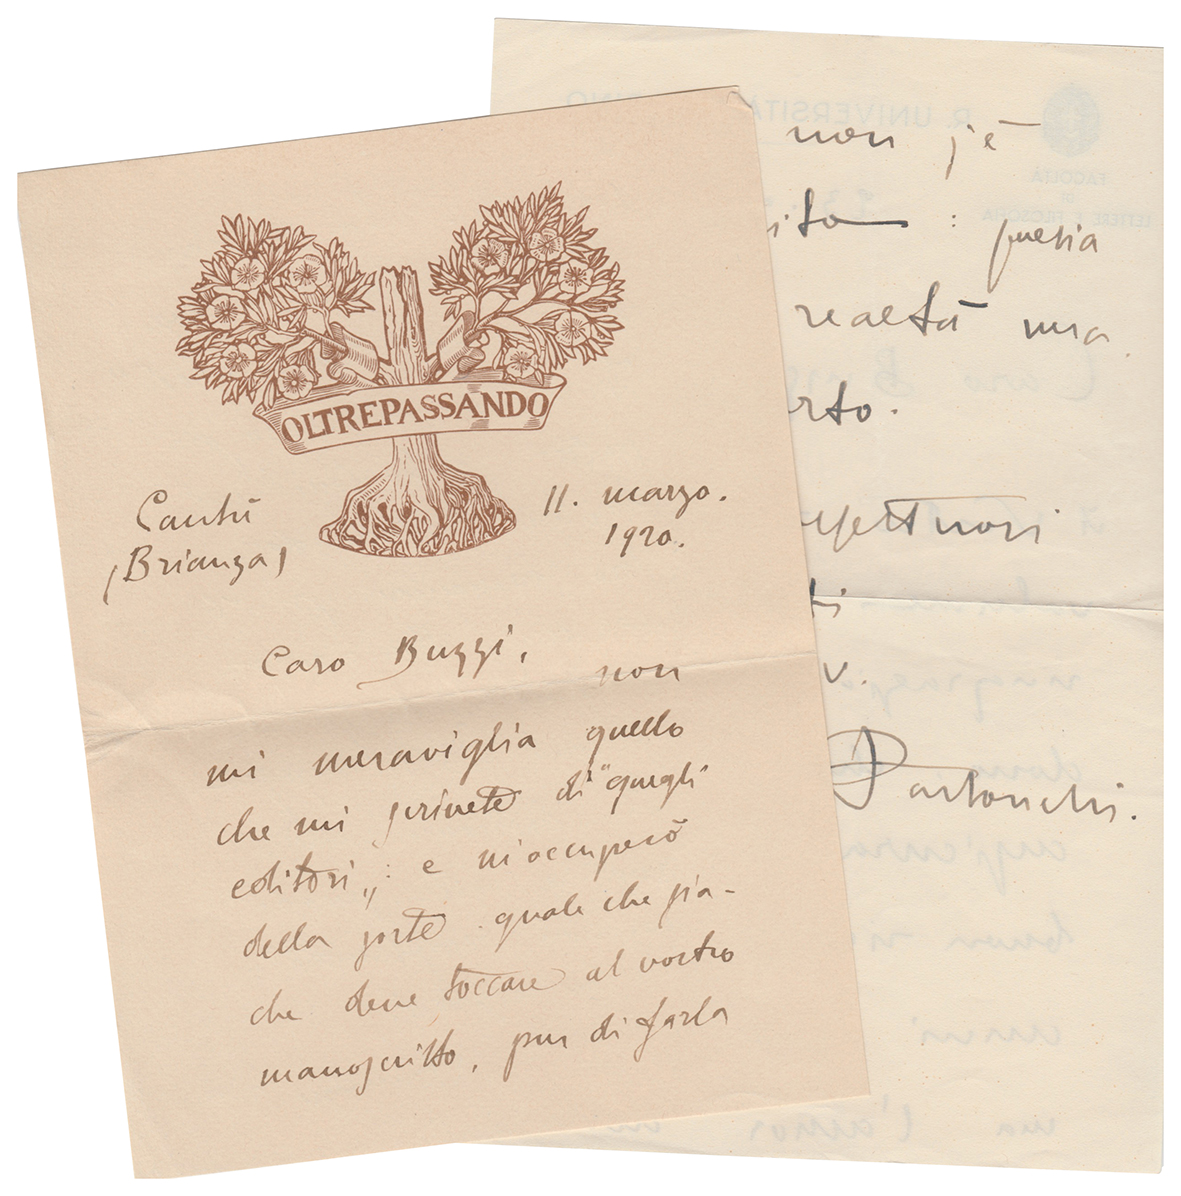 OLTREPASSANDO
Cantù
(Brianza)
11. marzo.
1920.
Caro Buzzi,
non
mi meraviglia quello
che mi scrivete di "quegli
editori„; e mi occuperò
della sorte quale che sia-
che deve toccare al vostro
manoscritto, pur di farla
R. UNIVERSITÀ
FACOLTÀ
DI
LETTERE E FILOSOFIA
non s'è
: questa
realtà mia
rto.
ti
v.
Pastonchi.